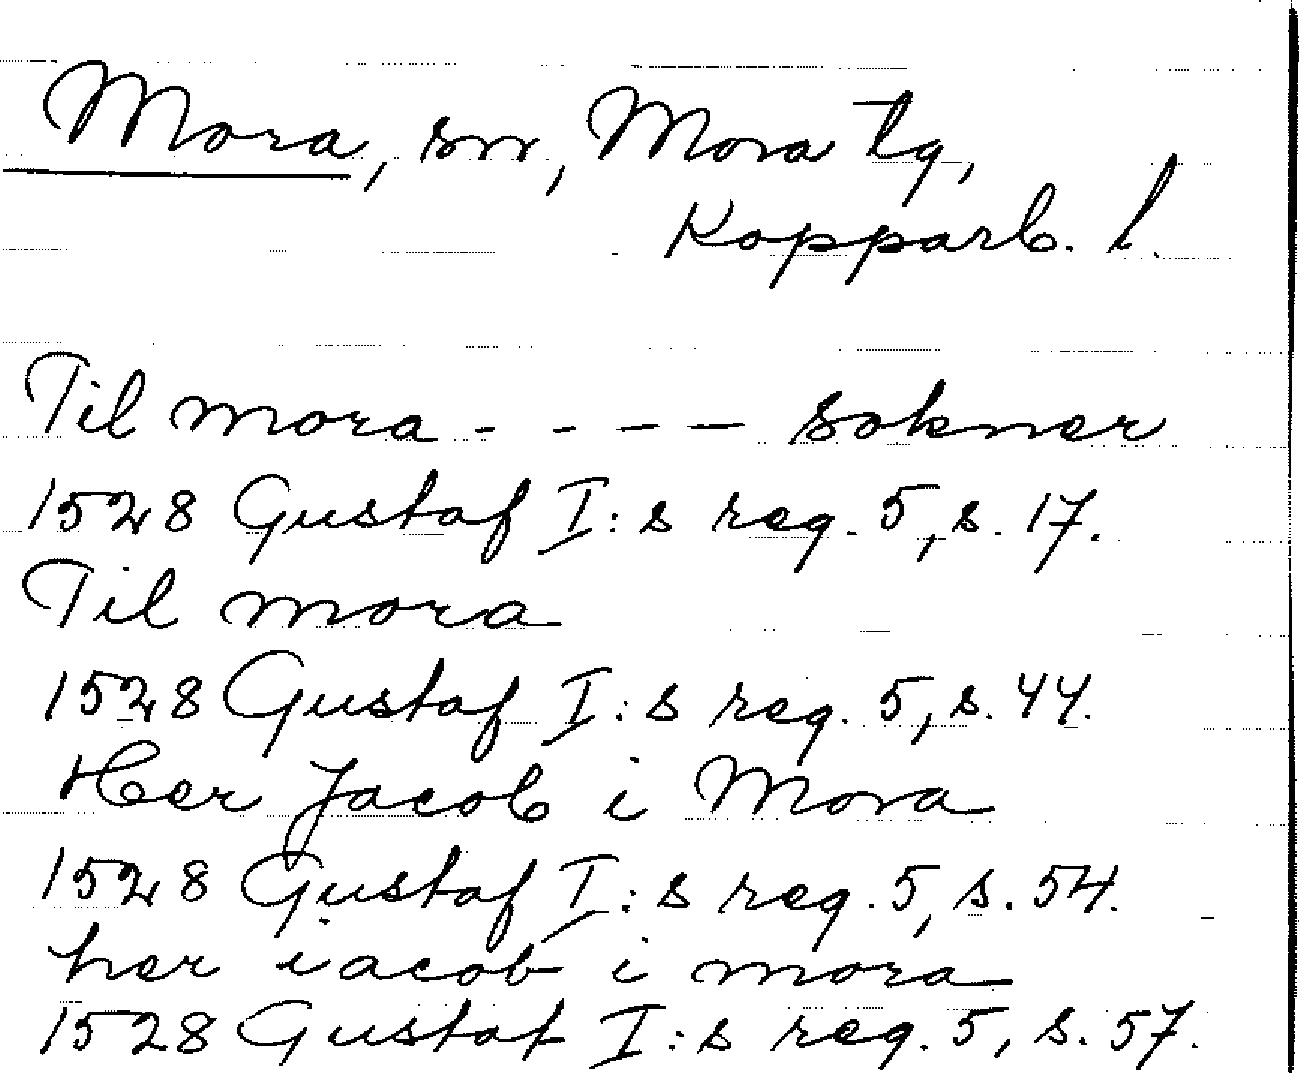 Mora, sn, Mora tg,
Kopparb. l.
Til mora - - - - sokner
1528 Gustaf I:s reg. 5, s. 17.
Til mora
1528 Gustaf I:s reg. 5, s. 44.
Her Jacob i Mora
1528 Gustaf I:s reg. 5, s. 54.
her iacob i mora
1528 Gustaf I:s reg. 5, s. 57.